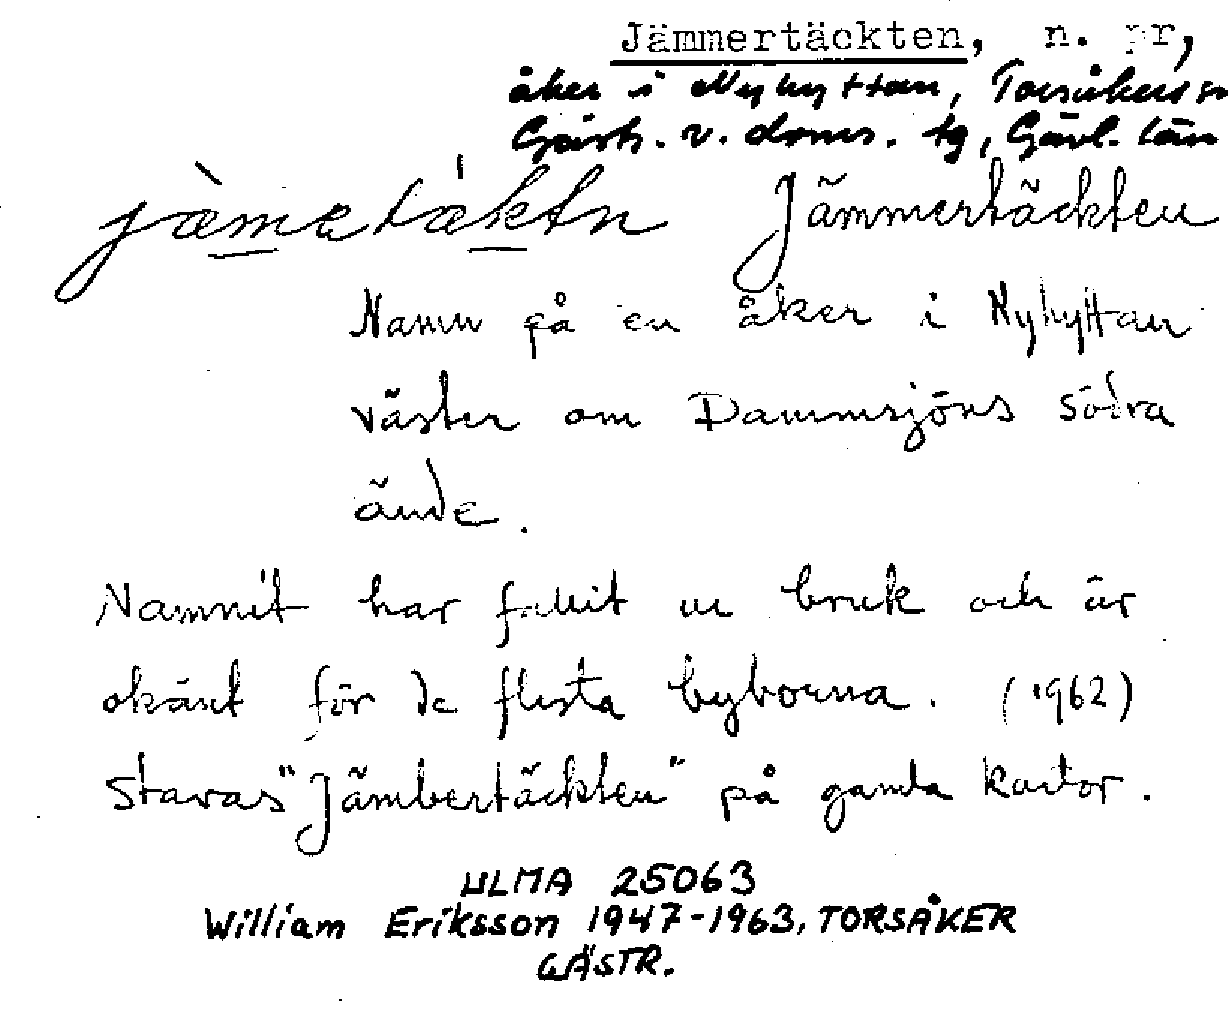 Jämmertäckten, n. pr,
åker i Nyhyttan, Torsåkers sn
Gästr. v. doms. tg, Gävl. län
jæmetæktn Jämmertäckten
Namn på en åker i Nyhyttan
väster om Dammsjöns södra
ände.
Namnet har fallit ur bruk och är
okänt för de flesta byborna. (1962)
Stavas "Jämbertäckten" på gamla kartor.
ULMA 25063
William Eriksson 1947-1963, TORSÅKER
GÄSTR.